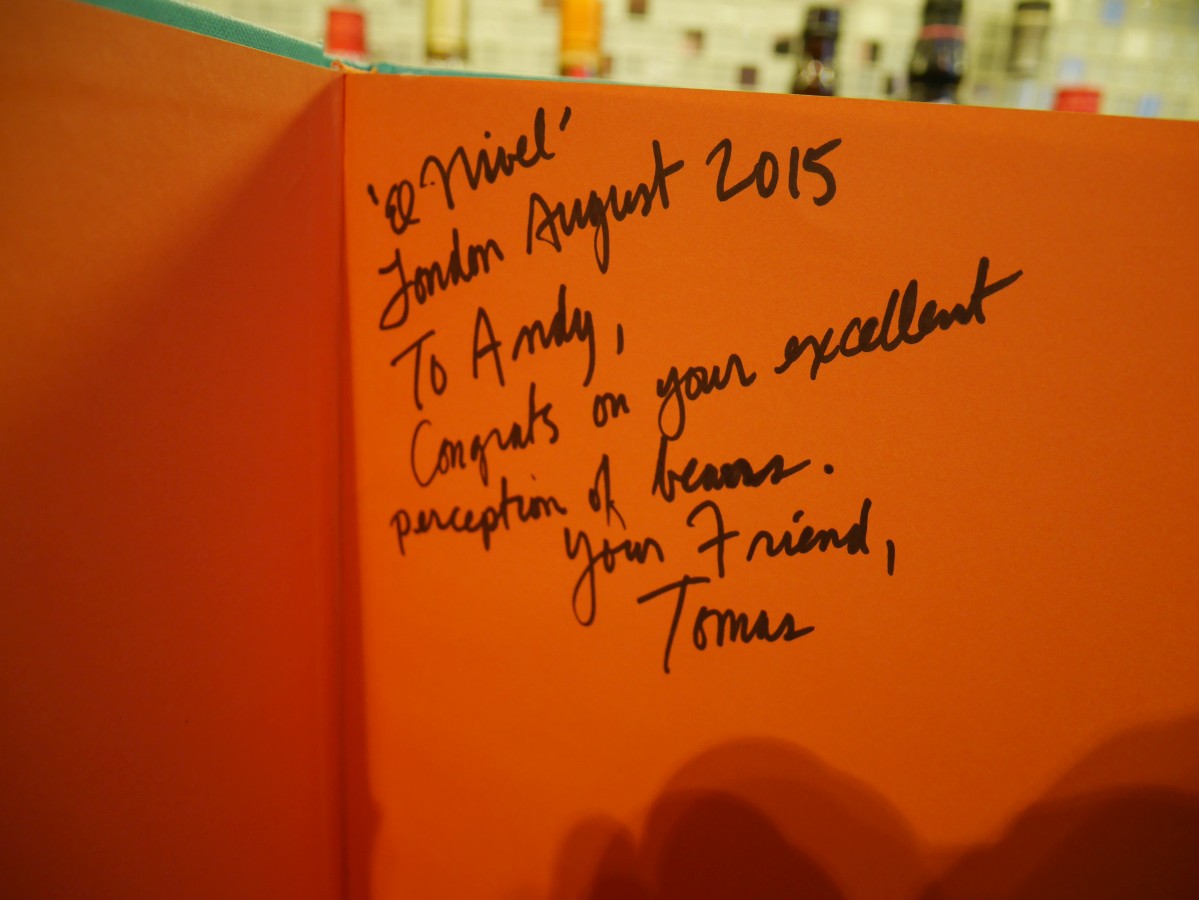 'El Nivel'
London August 2015
To Andy,
Congrats on your excellent
perception of
your Friend,
Tomas